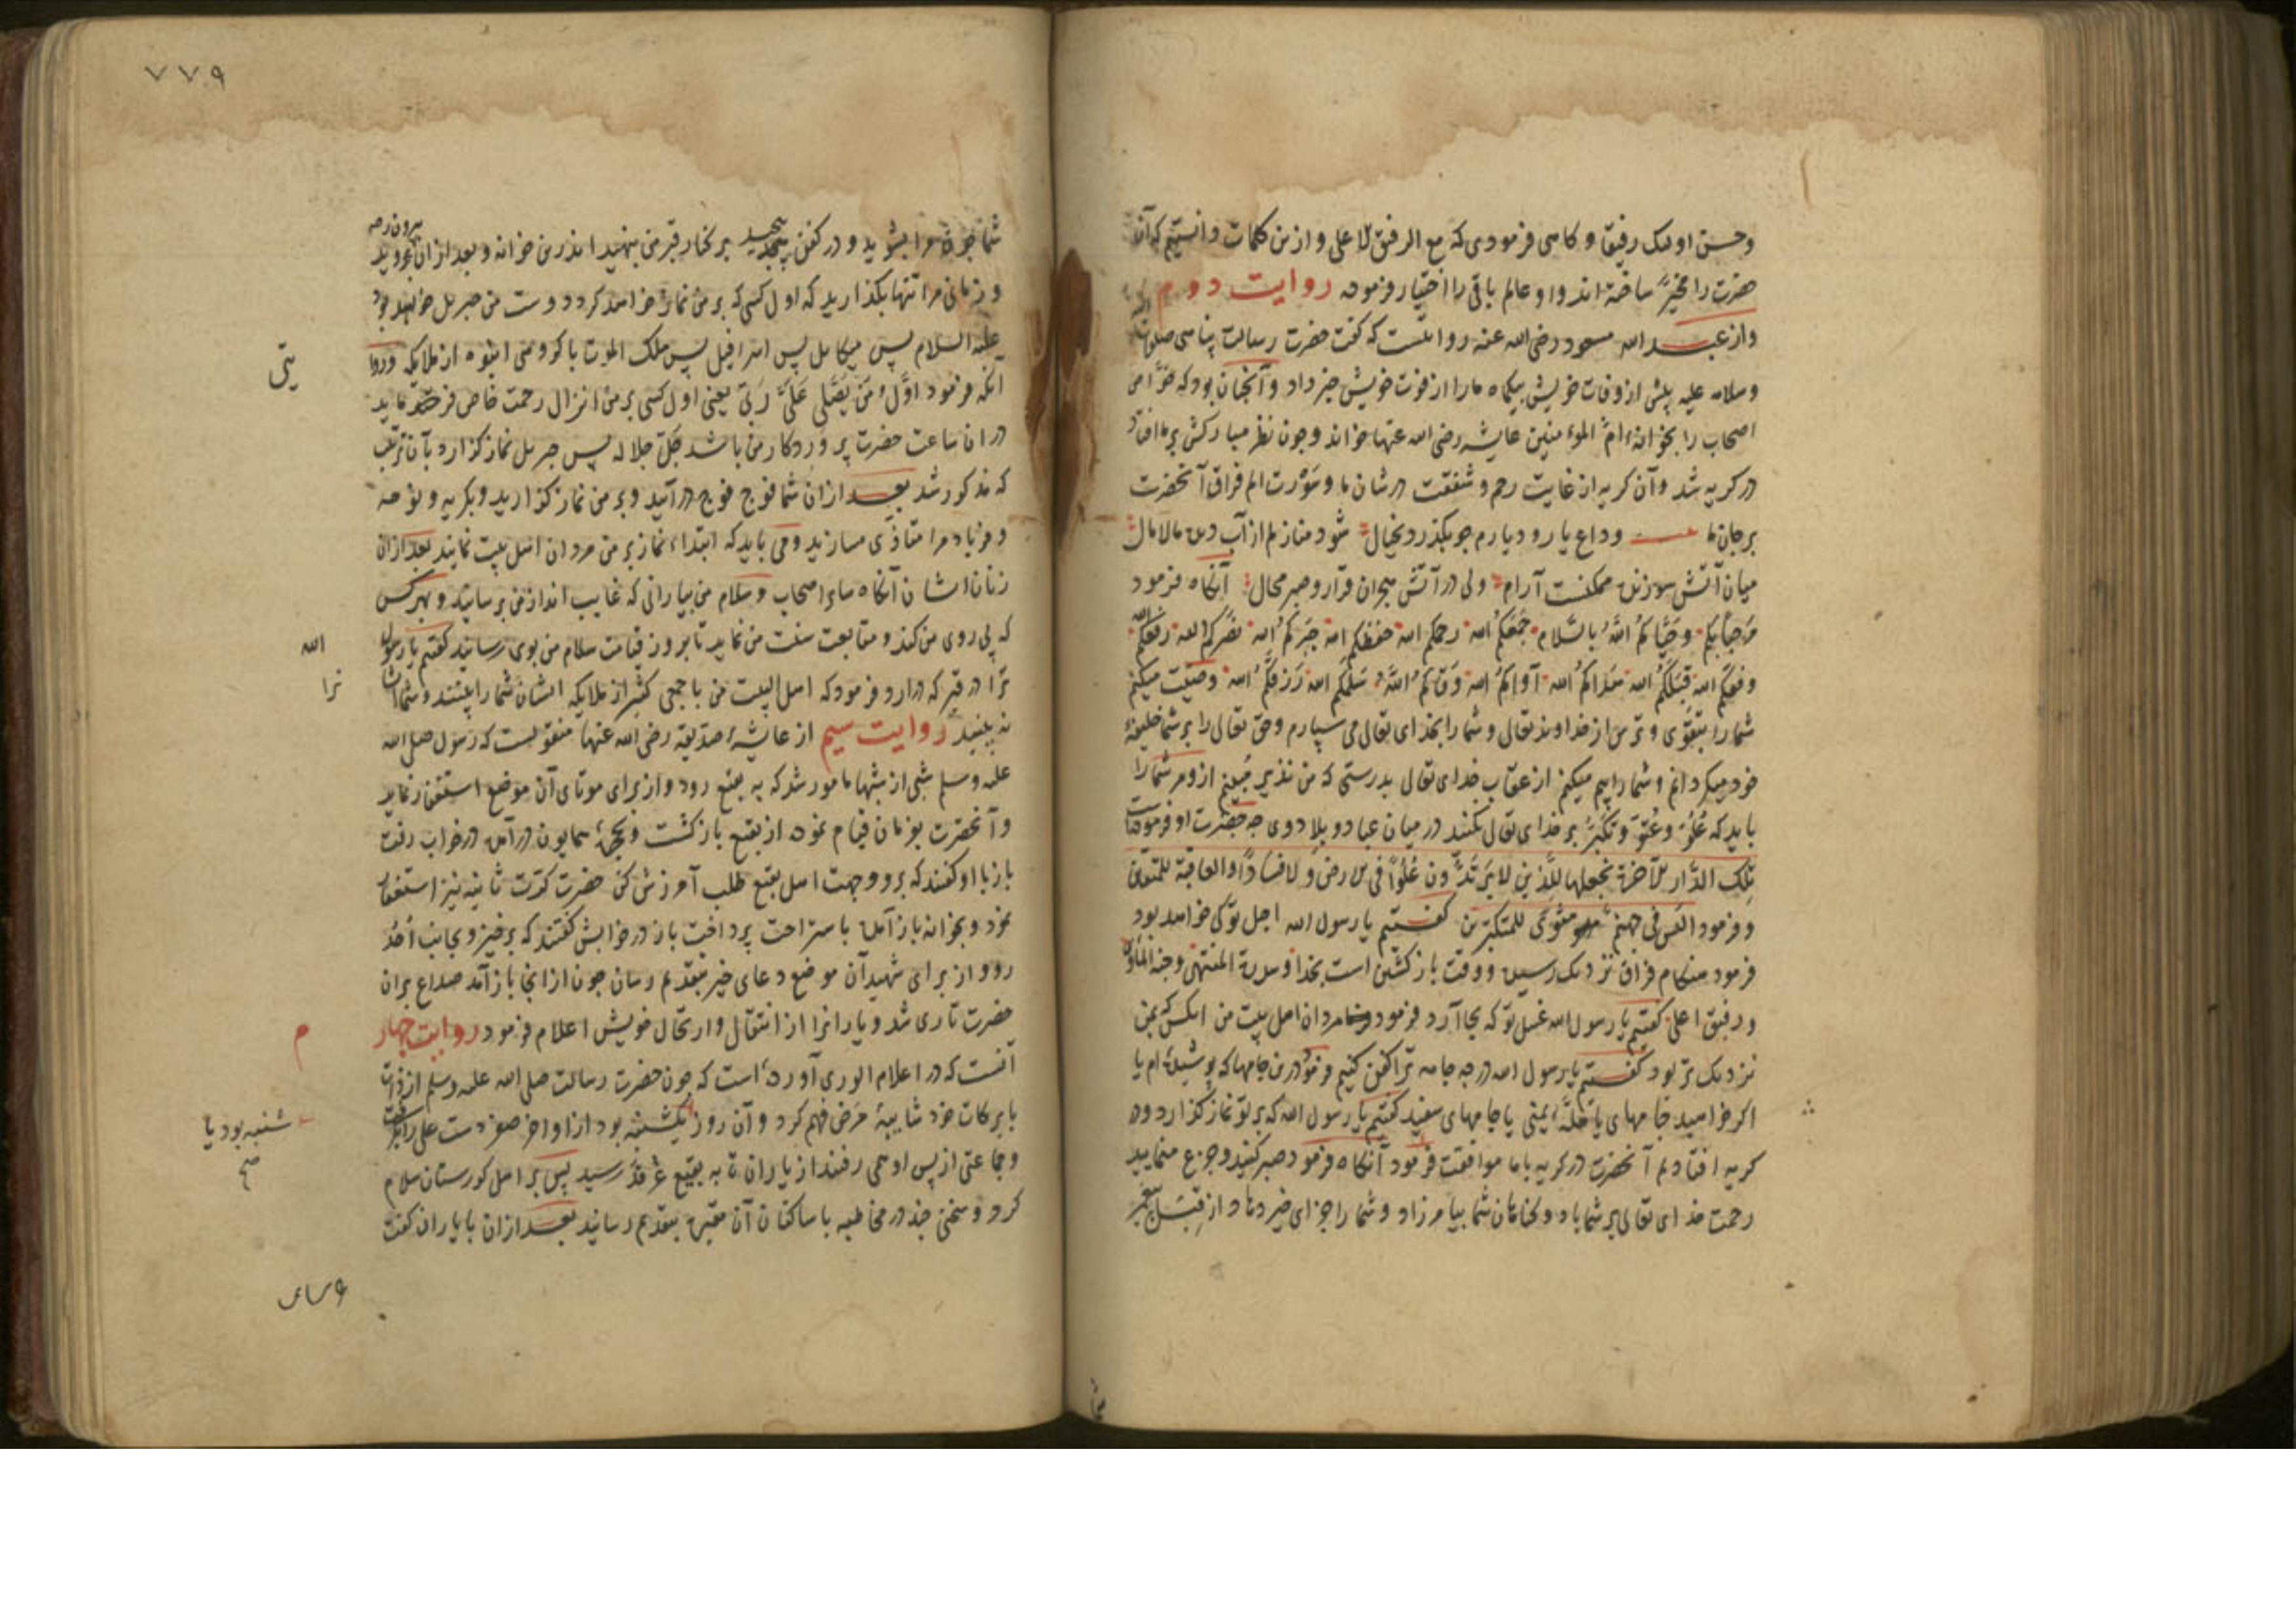 وحسن اولئک رفیقا و کاهی فرمودی که مع الرفیق الاعلی و ازین کلمات دانستیم که آن
حضرت را مخیّر ساخته اند و او عالم باقی را اختیار فرموده روایت دوم
واز عبد الله مسعود رضی الله عنه روایتست که کفت حضرت رسالت پناهی صلوات
وسلامه علیه پیش از وفات خویش بیکماه ما را از فوت خویش خبر داد و آنچنان بود که خوّاص
اصحاب را بخوانهٔ امّ المؤمنین عایشه رضی الله عنها خواند و چون نظر مبارکش بر ما افتاد
در کریه شد و آن کریه از غایت رحم و شفقت در شان ما و مؤرث الم فراق آنحضرت
بر جان ما وداع یار و دیارم چو بکذرد بخیال شود منازلم از آب دیده مالامال
میان آتش سوزنده ممکنست آرام ولی در آتش هجران قرار و صبر محال آنکاه فرمود
مَرحَبًا بِکُم وحَیّاکُمُ اللهُ بالسَّلام جَمَعَکُمُ الله رحمکم الله حفظکم الله جَبَرَکُمُ الله نصَرَکُمُ الله رفعکُم الله
وفقکم الله قبَلَکُمُ الله هَدَاکُمُ الله آواکُمُ الله وَقاکُمُ اللهُ سَلَمَکم الله رَزقَکُمُ الله وصیّت میکنم
شما را بتقوی و ترس از خداوند تعالی و شما را بخدای تعالی می سپارم وحق تعالی را بر شما خلیفهٔ
خود میکردانم و شما را بیم میکنم از عقاب خدای تعالی بدرستی که من نذیر مُبینم ازو مر شما را
باید که عُلوّ وعُتوّ وتکبّر بر خدای تعالی نکنند در میان عباد و بلاد وی چه حضرت او فرموده است
تِلکَ الدّار الآخرة نجعلها لِلَّذِین لا یُرِیدُون عُلُوًّا فی الارض وَلا فسَادًا والعاقبة للمتقین
وفرمود الیس فی جهنم مثوًی للمتکبّرین کفتیم یا رسول الله اجل تو کی خواهد بود
فرمود هنکام فراق نزدیک رسیده و وقت بازکشتن است بخدا و سدرة المنتهی وجنة المأوی
و رفیق اعلی کفتیم یا رسول الله غسل تو که بجا آرد فرمود مردان اهل بیت من آنکس که بمن
نزدیک تر بود کفتیم یا رسول الله در چه جامه ترا کفن کنیم فرمود درین جامها که پوشیدهٔ ام یا
اکر خواهید جامهای یا حُلّهٔ یمنی یا جامهای سفید کفتیم یا رسول الله که بر تو نماز کذارد و در
کریه افتادیم آنحضرت در کریه با ما موافقت فرمود آنکاه فرمود صبر کنید و جزع منمایید
رحمت خدای تعالی بر شما باد و کناهان شما بیامرزاد و شما را جزای خیر دهاد از قِبَل پیغمبر
۷۷۹
شما چون مرا بشویید و در کفن پیچید بر کنار قبر من بنهید اندرین خوانه و بعد از ان بیرون روید
و زمانی مرا تنها بکذارید که اول کسی که بر من نماز خواهد کرد دوست من جبریل خواهد بود
علیه السلام پس میکایل پس اسرافیل پس ملک الموت با کروهی انبوه از ملایکه و روا
آنکه فرمود اوّلُ مَن یُصَلّی عَلَیَّ رَبّی یعنی اول کسی بر من انزال رحمت خاص فرماید
یتی
در ان ساعت حضرت پروردکار من باشد جَلّ جلاله پس جبریل نماز کزارد بآن ترتیب
که مذکور شد بعد از ان شما فوج فوج در آیید و بر من نماز کزارید و بکریه و نوحه
و فریاد مرا متاذّی مسازید ومی باید که ابتداء نماز بر من مردان اهل بیت نمایند بعد از ان
زنان ایشان آنکاه سایر اصحاب و سلام من بیارانی که غایب اند از من برسانید و بهر کس
که پی روی من کند و متابعت سنت من نماید تا بروز قیامت سلام من بوی رسانید کفتم یا رسول
الله
ترا در قبر که در ارد فرمود که اهل البیت من با جمعی کثیر از ملایکه ایشان شما را بینند و شما ایشان
نرا
نه بینید روایت سیم از عایشهٔ صدّیقه رضی الله عنها منقولست که رسول صلی الله
علیه وسلم شبی از شبها مامور شد که به بقیع رود و از برای موتای آن موضع استغفار نماید
و آنحضرت بوزمان قیام نمود از بقیع بازکشت و بحجرهٔ همایون در آمده در خواب رفت
باز با او کفتند که برو وجهت اهل بقیع طلب آمرزش کن حضرت کرّت ثانیه نیز استغفار
نمود و بخوانه باز آمده باستراحت پرداخت باز در خوابش کفتند که برخیز و بجانب اُحُد
رو و از برای شهیدان آن موضع دعای خیر بتقدیم رسان چون از انجا باز آمد صداع بران
حضرت تاری شد و یارانرا از انتقال و ارتحال خویش اعلام فرمود روایت چهار
م
آنست که در اعلام الوری آورده است که چون حضرت رسالت صلی الله علیه وسلم از ذات
با برکات خود شایبهٔ مرض فهم کرد و آن روز یکشنبه بود از اواخر صفر دست علی را کرفت
شنبه بود یا
صح
وجماعتی از پس او می رفتند از یاران تا به بقیع غرقد رسید پس بر اهل کورستان سلام
کرد و سخنی چند در مخاطبه با ساکنان آن مقبره بتقدیم رسانید بعد از ان با یاران کفت